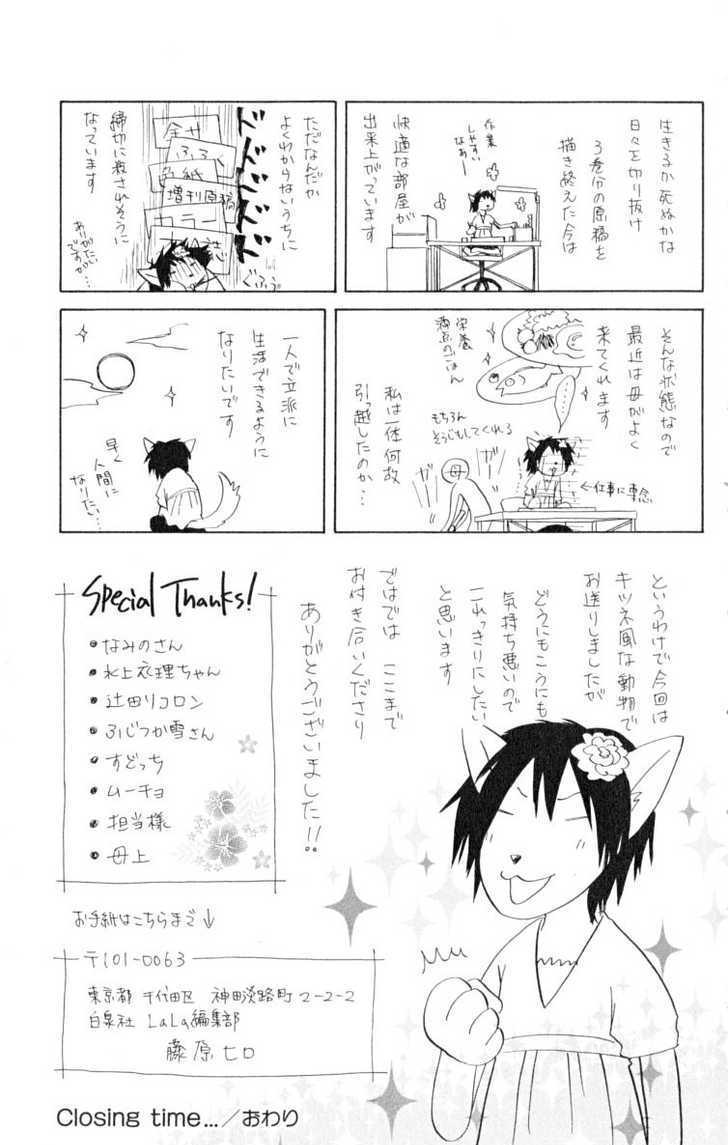 生きるか死ぬかな
日々を切り抜け
3巻分の原稿を
描き終えた今は
快適な部屋が
出来上がっています
作業
しやすい
なぁー
ただなんだか
よくわからないうちに
ドドドドド
全サ
ふろく
色紙
増刊原稿
カラー
締切に殺されそうに
なっています
ぐふっ
ありがたい
ですが…
そんな状態なので
最近は母がよく
来てくれます
栄養
満点のごはん
もちろん
そうじもしてくれる
私は一体何故
引っ越したのか…
母
ガー
ガー
←仕事に専念
一人で立派に
生活できるように
なりたいです
早く
人間に
なりたい…
というわけで今回は
キツネ風な動物で
お送りしましたが
どうにもこうにも
気持ち悪いので
これっきりにしたい
と思います
ではでは ここまで
お付き合いくださり
ありがとうございました!!
Special Thanks!
●なみのさん
●水上衣理ちゃん
●辻田リコロン
●ふじつか雪さん
●すどっち
●ムーチョ
●担当様
●母上
お手紙はこちらまで↓
〒101-0063
東京都 千代田区 神田淡路町2-2-2
白泉社 LaLa編集部
藤原ヒロ
Closing time…/おわり